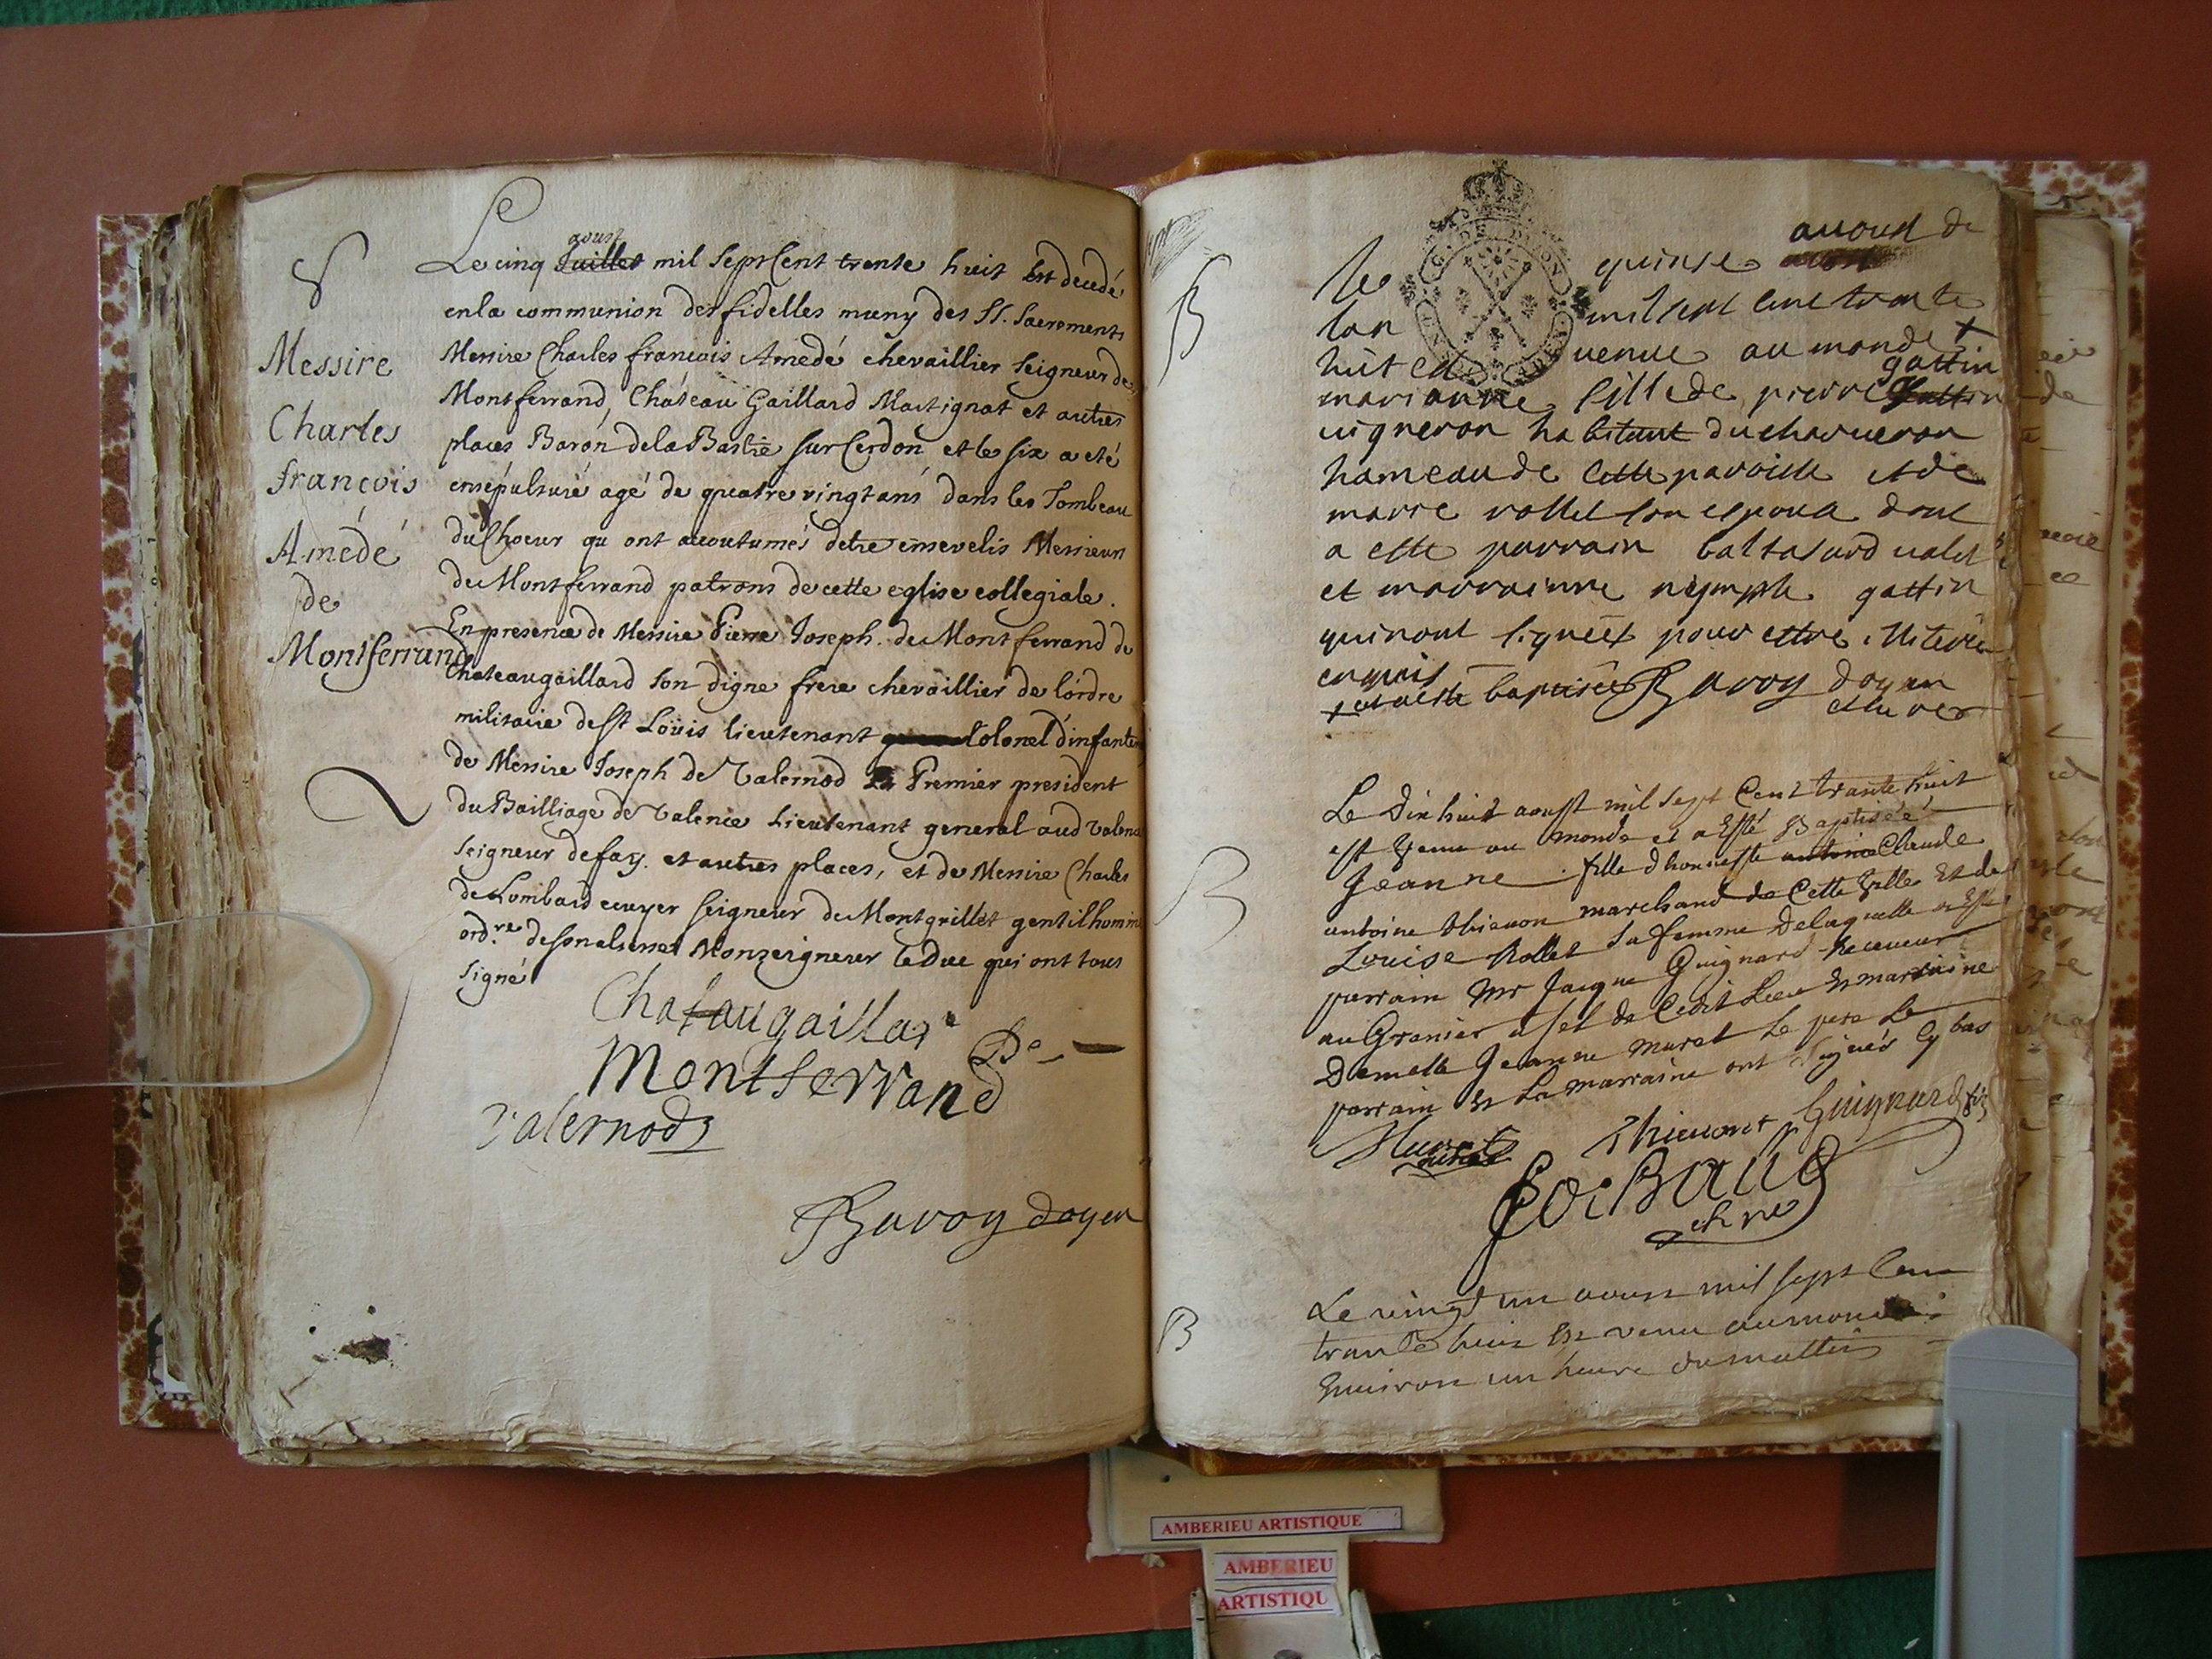 S
Messire
Charles
françois
Amédé
de
Montferrand
aoust
Le cinq Juillet mil Sept Cent trente huit Est decedé
en la communion des fidelles muny des SS. Sacrements
Messire Charles françois Amedé chevaillier seigneur de
Montferrand, Cháteau Gaillard Martignat et autres
places Baron de la Bastie sur Cerdon et le six a eté
ensépulturé agé de quatre vingt ans dans les Tombeau
du Choeur qu ont accoutumés detre ensevelis Messieurs
de Montferrand patrons de cette eglise collegiale.
En presence de Messire Pierre Joseph de Montferrand de
Chateaugaillard son digne frere chevaillier de lordre
militaire de st Loüis lieutenant Colonel d'infanterie
de Messire Joseph de Valernod Premier president
du Bailliage de Valence Lieutenant general aud Valence
Seigneur de fay. et autres places, et de Messire Charles
de Lombard ecuyer seigneur de Montgrillet gentilhomme
ord.re de son alsesse Monseigneur le Duc qui ont tous
signé
Chataugaillar
De
Montferrand
Valernod
Ravoy doyen
B
auoud de
le quinse
lan mil sept cent trante
huit est venue au monde +
gattin
marianne fille de pierre gattin
uigneron habitant du charueron
hameau de cette paroisse et de
marie rollet son espoua dont
a este parrain baltasard valet
et marrainne nymphe gattin
qui nont signeet pour estre iliterée
enquis
+ et a este baptisée Ravoy doyen
et curé
B
Le Dix huit aoust mil Sept Cent trante huit
est Venu au monde et a Esté Baptisée
Jeanne fille dhonneste antoine Claude
antoine thieuon marchand de Cette Ville Et de
Louise Rollet Sa femme De laquelle a Esté
parrain Mr Jacque Guignard Receueur
au Grenier a sel de Cedit Lieu Et marraine
Demelle Jeanne muret Le pere Le
parrain Et La marraine ont Signés Cy bas
Muret
Thieuont
Guignard fis
B
Le vingt un aoust mil sept Cen
trante huit Est venu au monde
Enuiron un heure du mattin
AMBERIEU ARTISTIQUE
AMBERIEU
ARTISTIQU